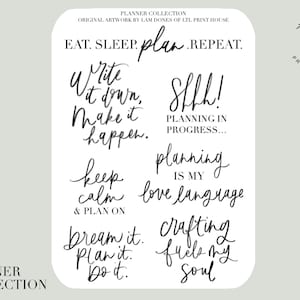 PLANNER COLLECTION
ORIGINAL ARTWORK BY LAM DONES OF LTL PRINT HOUSE
EAT. SLEEP. plan .REPEAT.
Write
it down,
Make it
happen.
Shhh!
PLANNING IN
PROGRESS...
keep
calm
& PLAN ON
planning
IS MY
love language
Dream it.
Plan it.
Do it.
crafting
fuels my
soul
NER
LECTION